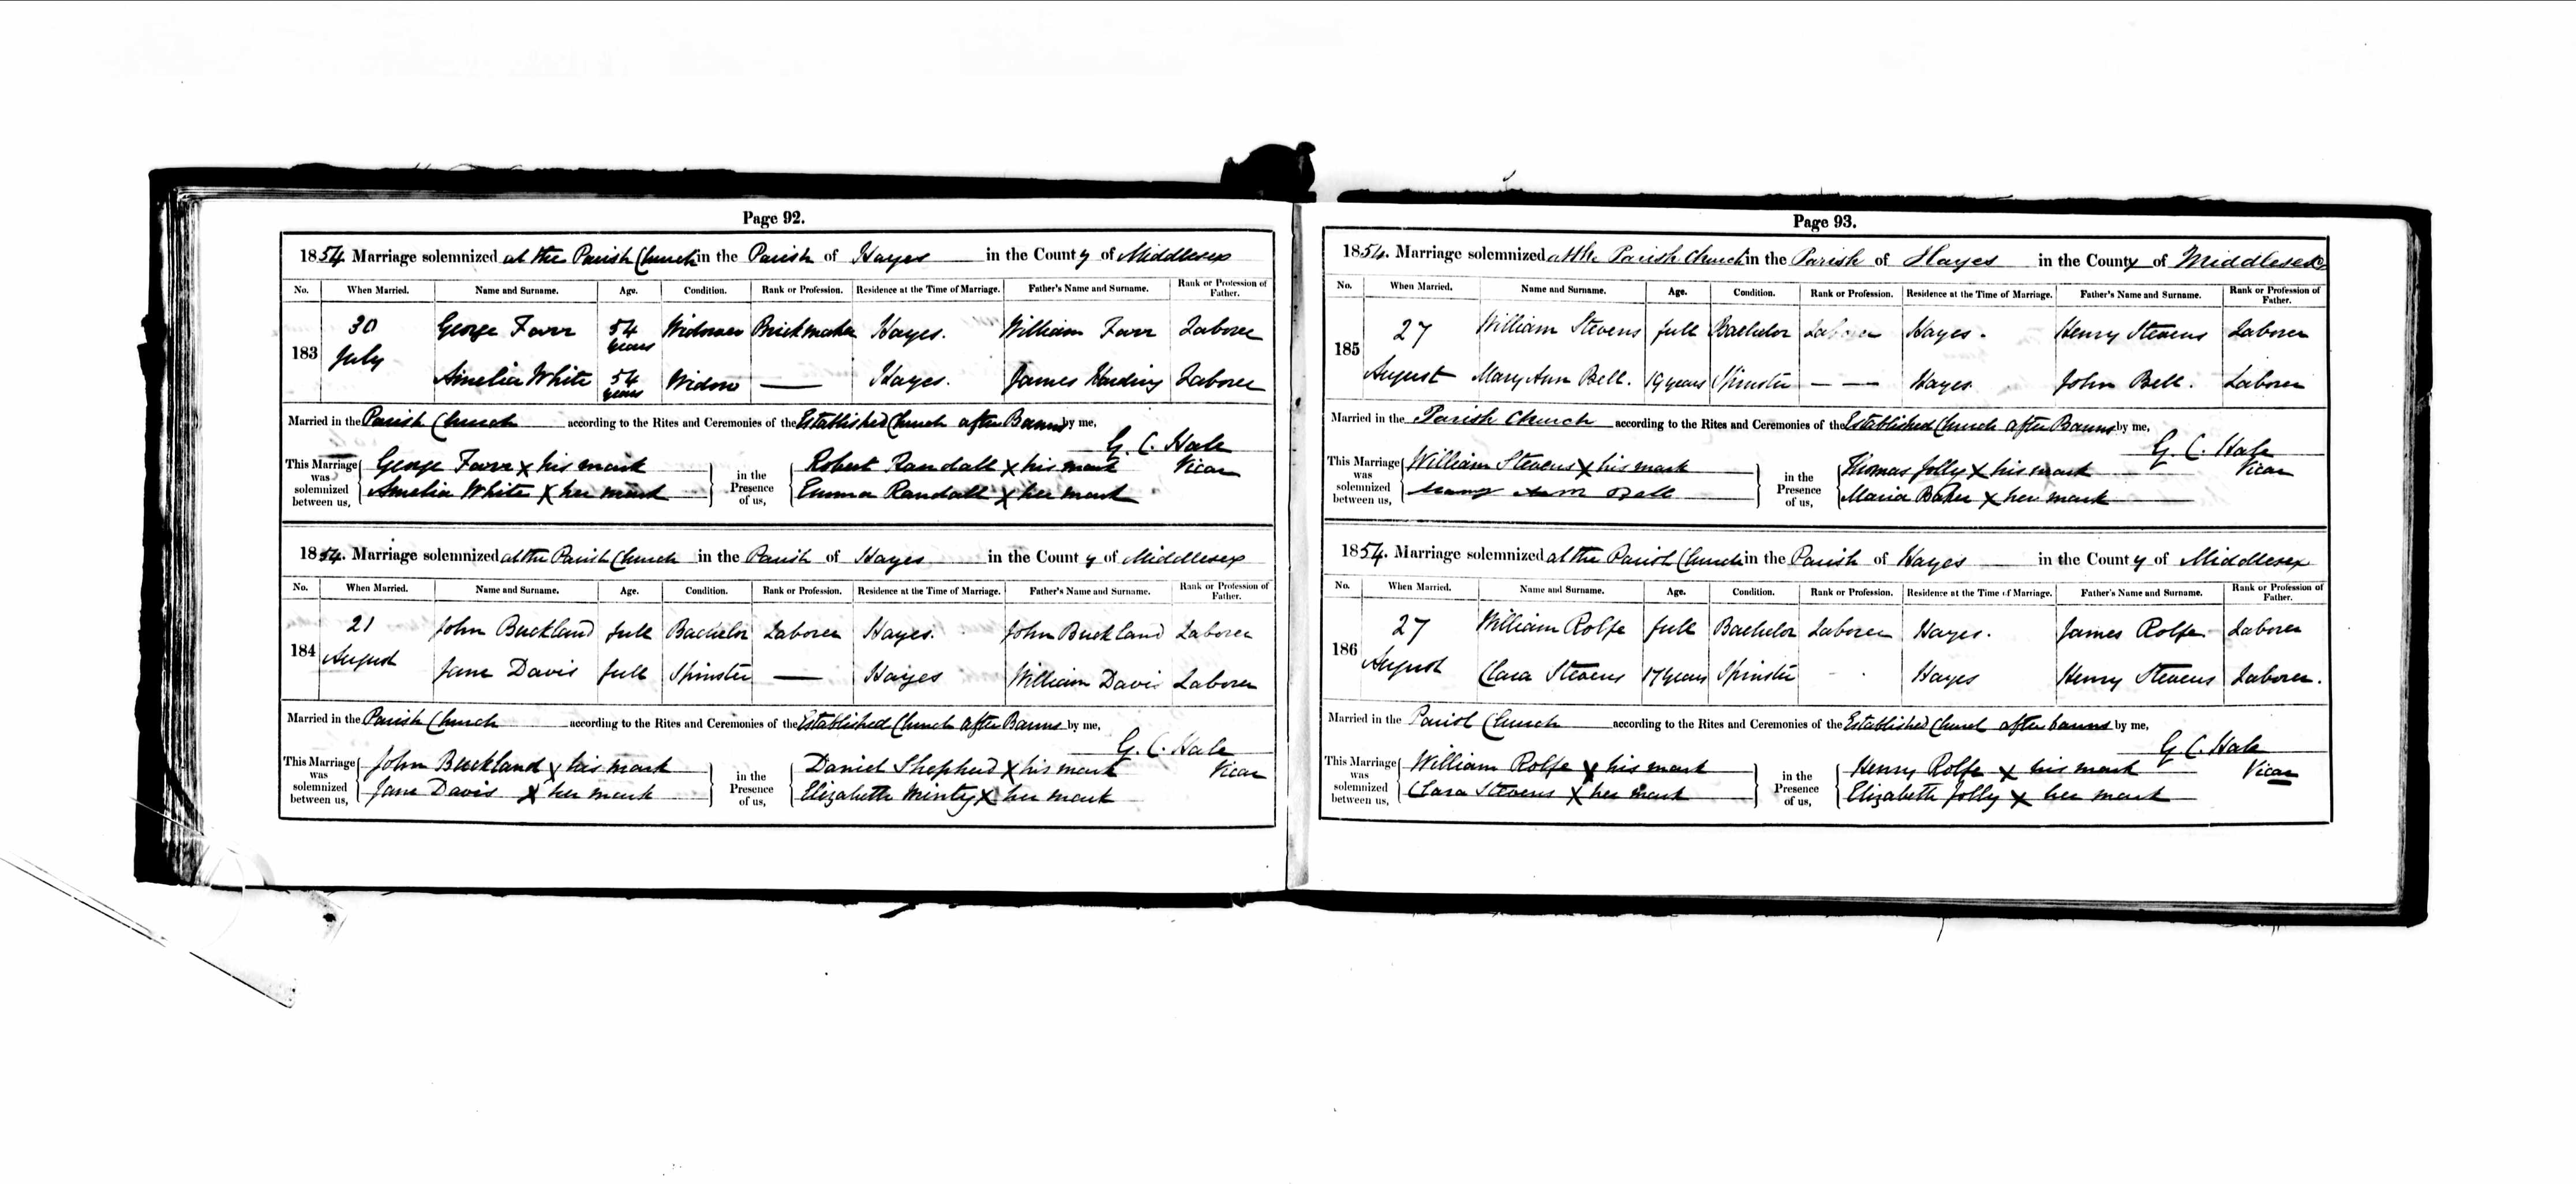 Page 92.
1854. Marriage solemnized at the Parish Church in the Parish of Hayes in the County of Middlesex
No. When Married. Name and Surname. Age. Condition. Rank or Profession. Residence at the Time of Marriage. Father's Name and Surname. Rank or Profession of Father.
183 30 July George Farr 54 years Widower Brickmaker Hayes. William Farr Laborer
Amelia White 54 years Widow — Hayes. James Harding Laborer
Married in the Parish Church according to the Rites and Ceremonies of the Established Church after Banns by me,
G. C. Hale
Vicar
This Marriage was solemnized between us, George Farr x his mark in the Presence of us, Robert Randall x his mark
Amelia White x her mark Emma Randall x her mark
1854. Marriage solemnized at the Parish Church in the Parish of Hayes in the County of Middlesex
No. When Married. Name and Surname. Age. Condition. Rank or Profession. Residence at the Time of Marriage. Father's Name and Surname. Rank or Profession of Father.
184 21 August John Buckland full Bachelor Laborer Hayes. John Buckland Laborer
Jane Davis full Spinster — Hayes William Davis Laborer
Married in the Parish Church according to the Rites and Ceremonies of the Established Church after Banns by me,
G. C. Hale
Vicar
This Marriage was solemnized between us, John Buckland x his mark in the Presence of us, Daniel Shepherd x his mark
Jane Davis x her mark Elizabeth Minty x her mark
Page 93.
1854. Marriage solemnized at the Parish Church in the Parish of Hayes in the County of Middlesex
No. When Married. Name and Surname. Age. Condition. Rank or Profession. Residence at the Time of Marriage. Father's Name and Surname. Rank or Profession of Father.
185 27 August William Stevens full Bachelor Laborer Hayes. Henry Stevens Laborer
Mary Ann Bell. 19 years Spinster — — Hayes. John Bell. Laborer
Married in the Parish Church according to the Rites and Ceremonies of the Established Church after Banns by me,
G. C. Hale
Vicar
This Marriage was solemnized between us, William Stevens x his mark in the Presence of us, Thomas Jolly x his mark
Mary Ann Bell Maria Baker x her mark
1854. Marriage solemnized at the Parish Church in the Parish of Hayes in the County of Middlesex
No. When Married. Name and Surname. Age. Condition. Rank or Profession. Residence at the Time of Marriage. Father's Name and Surname. Rank or Profession of Father.
186 27 August William Rolfe full Bachelor Laborer Hayes. James Rolfe Laborer
Clara Stevens 17 years Spinster Hayes Henry Stevens Laborer.
Married in the Parish Church according to the Rites and Ceremonies of the Established Church after banns by me,
G. C. Hale
Vicar
This Marriage was solemnized between us, William Rolfe x his mark in the Presence of us, Henry Rolfe x his mark
Clara Stevens x her mark Elizabeth Jolly x her mark